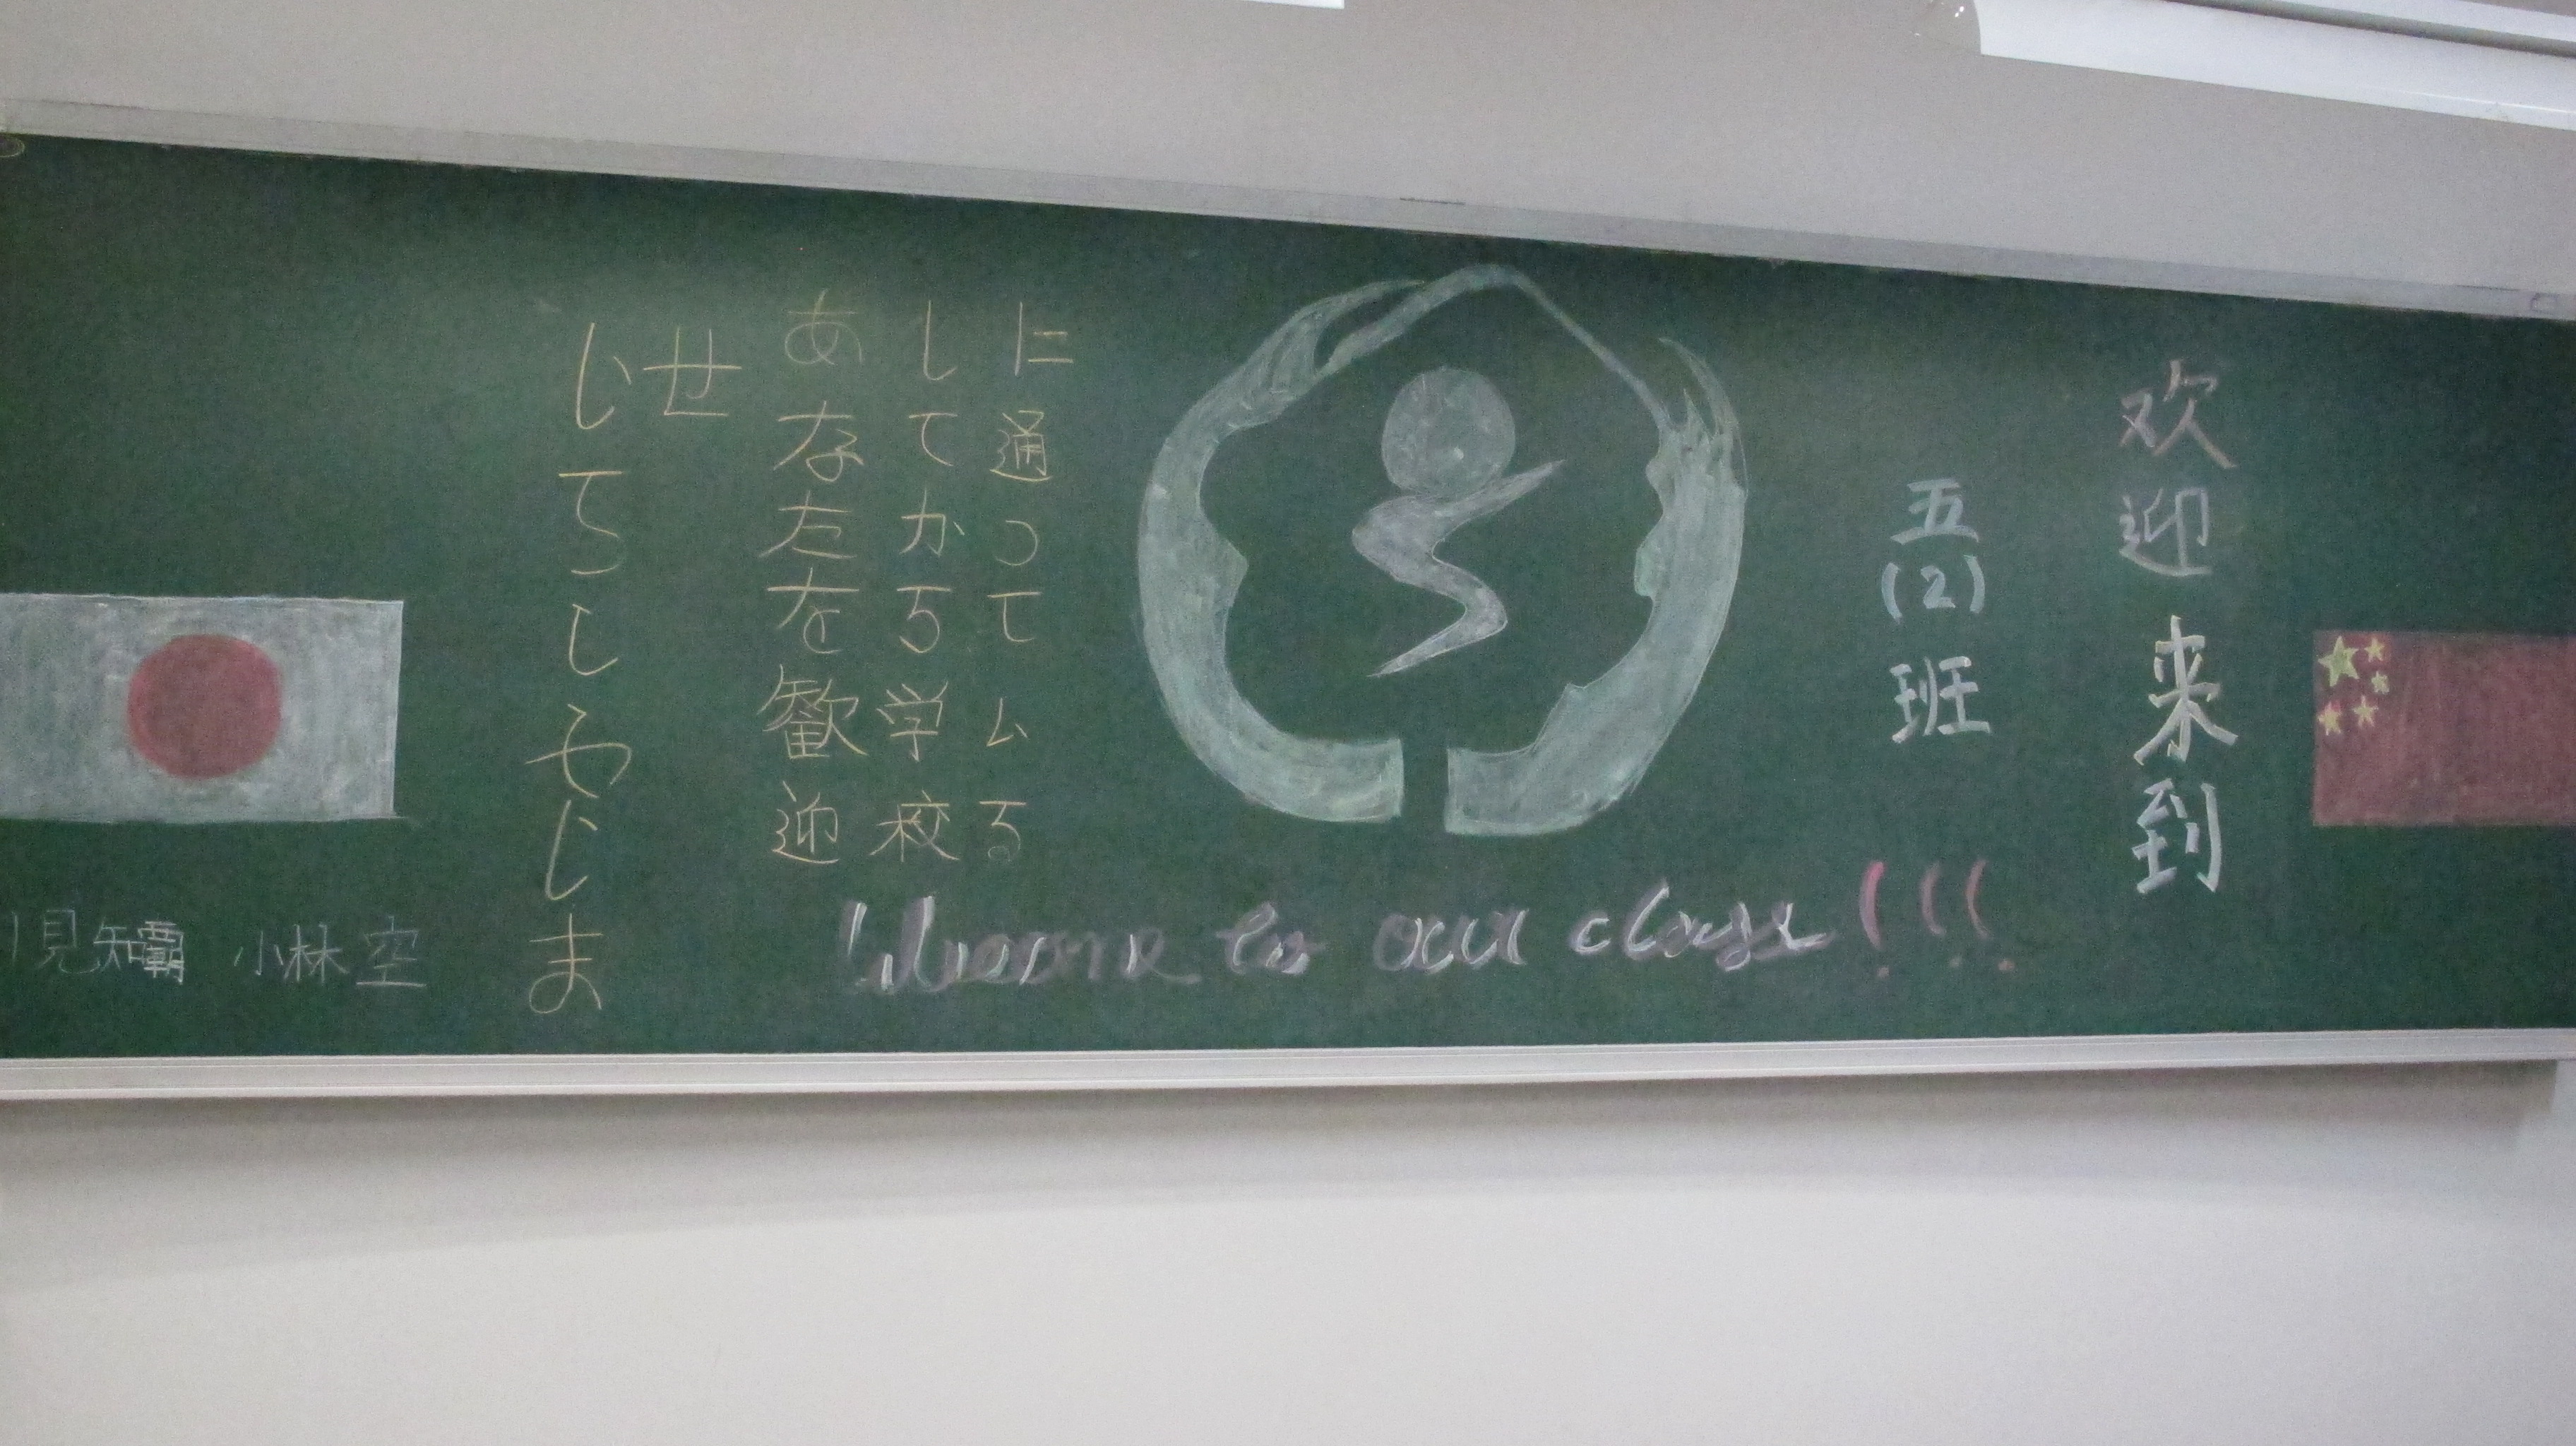 欢迎来到
五(2)班
に通ってムる
してかる学校
あなたを歓迎
せ
いてらしやいま
to our class!!!
見知覇 小林空